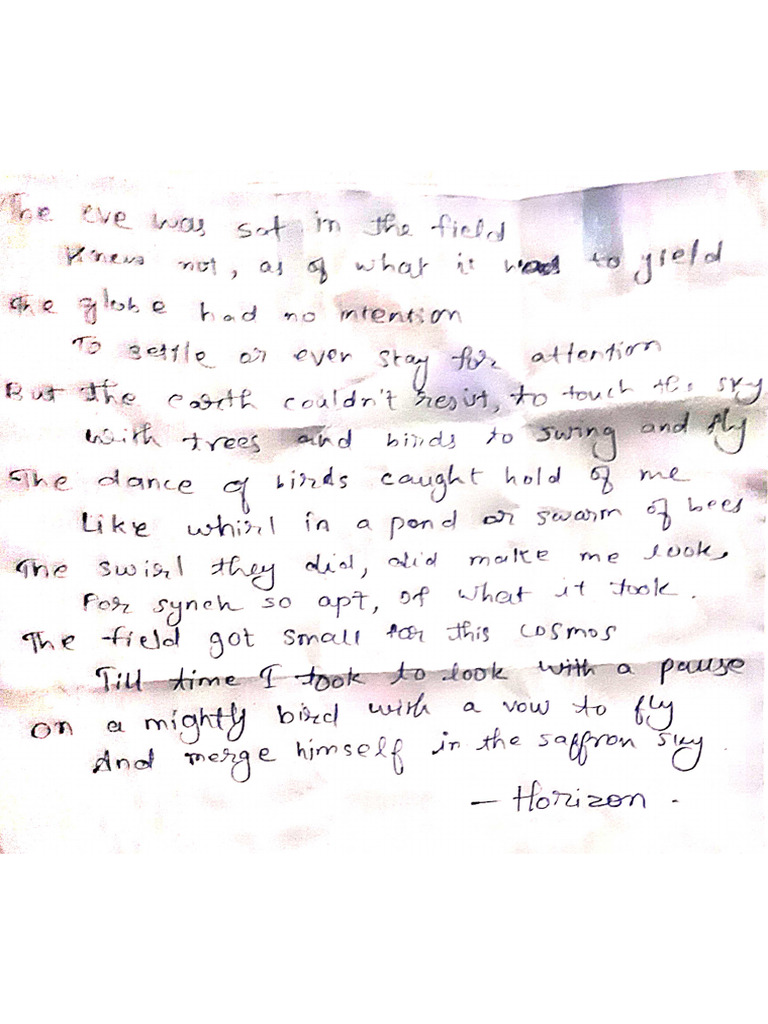 The eve was sat in the field
Knew not, as of what it had to yield
The globe had no intention
To settle or even stay for attention
But the earth couldn't resist, to touch the sky
With trees and birds to swing and fly
The dance of birds caught hold of me
Like whirl in a pond or swarm of bees
The swirl they did, did make me look,
For synch so apt, of what it took.
The field got small for this cosmos
Till time I took to look with a pause
On a mightly bird with a vow to fly
And merge himself in the saffron sky.
- Horizon.